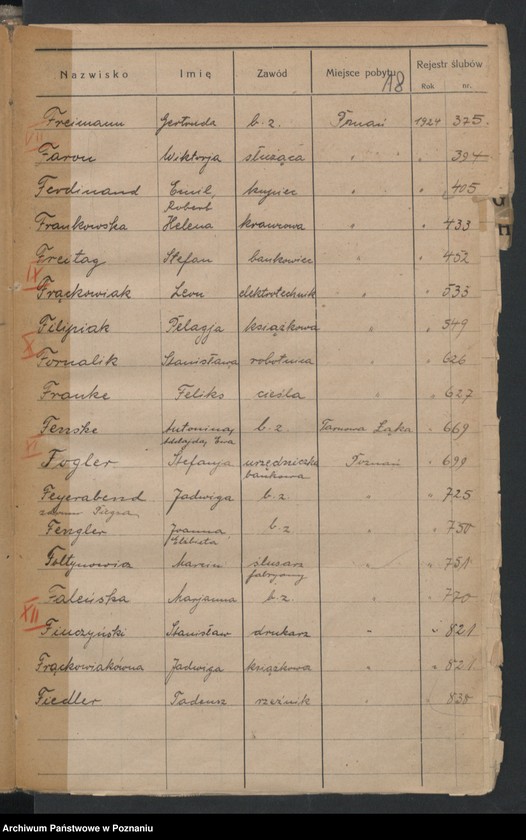 18
Nazwisko Imię Zawód Miejsce pobytu Rejestr ślubów
Rok nr.
Freimann Gertruda b. z. Poznań 1924 375.
VII
Faron Wiktorja służąca " " 394
Ferdinand Emil, kupiec " " 405
Robert
Frankowska Helena krawcowa " " 433
Freitag Stefan bankowiec " " 452
IX
Frąckowiak Leon elektrotechnik " " 533
Filipiak Pelagja książkowa " " 549
X
Fornalik Stanisława robotnica " " 626
Franke Feliks cieśla " " 627
Fenske Antonina, b. z. Tarnowa Łąka " 669
Adelajda, Ewa
XI
Fogler Stefanja urzędniczka Poznań " 699
bankowa
Feyerabend Jadwiga b. z. " " 725
Fengler Joanna, b. z. " " 750
Elżbieta
Fołtynowicz Marcin ślusarz " " 751
fabryczny
Faleńska Marjanna b. z. " " 770
XII
Finczyński Stanisław drukarz " " 821
Frąckowiakówna Jadwiga książkowa " " 821
Fiedler Tadeusz rzeźnik " " 838
Archiwum Państwowe w Poznaniu